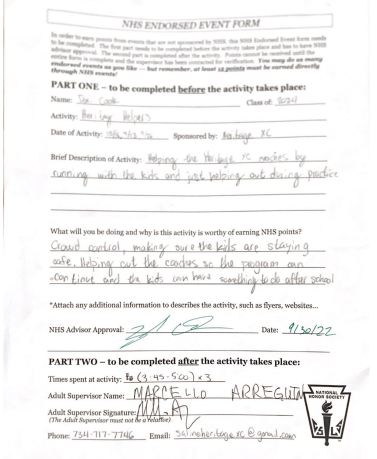 NHS ENDORSED EVENT FORM
In order to earn points from events that are not sponsored by NHS, this NHS Endorsed Event form needs
to be completed. The first part needs to be completed before the activity takes place and has to have NHS
advisor approval. The second part is completed after the activity. Points cannot be received until the
entire form is complete and the supervisor has been contacted for verification. You may do as many
endorsed events as you like – but remember, at least 12 points must be earned directly
through NHS events!
PART ONE – to be completed before the activity takes place:
Name: Cook Class of: 2024
Activity: Heritage Helpers
Date of Activity: Sponsored by: Heritage XC
Brief Description of Activity: Helping the Heritage XC coaches by
running with the kids and just helping out during practice
What will you be doing and why is this activity is worthy of earning NHS points?
Crowd control, making sure the kids are staying
safe. Helping out the coaches so the program can
continue and the kids can have something to do after school
*Attach any additional information to describes the activity, such as flyers, websites...
NHS Advisor Approval: Date: 9/30/22
PART TWO – to be completed after the activity takes place:
Times spent at activity: (3:45-5:00) x3
Adult Supervisor Name: MARCELLO ARREGUIN
Adult Supervisor Signature:
(The Adult Supervisor must not be a relative)
Phone: 734-717-7746 Email: salineheritagexc@gmail.com
NATIONAL
HONOR SOCIETY